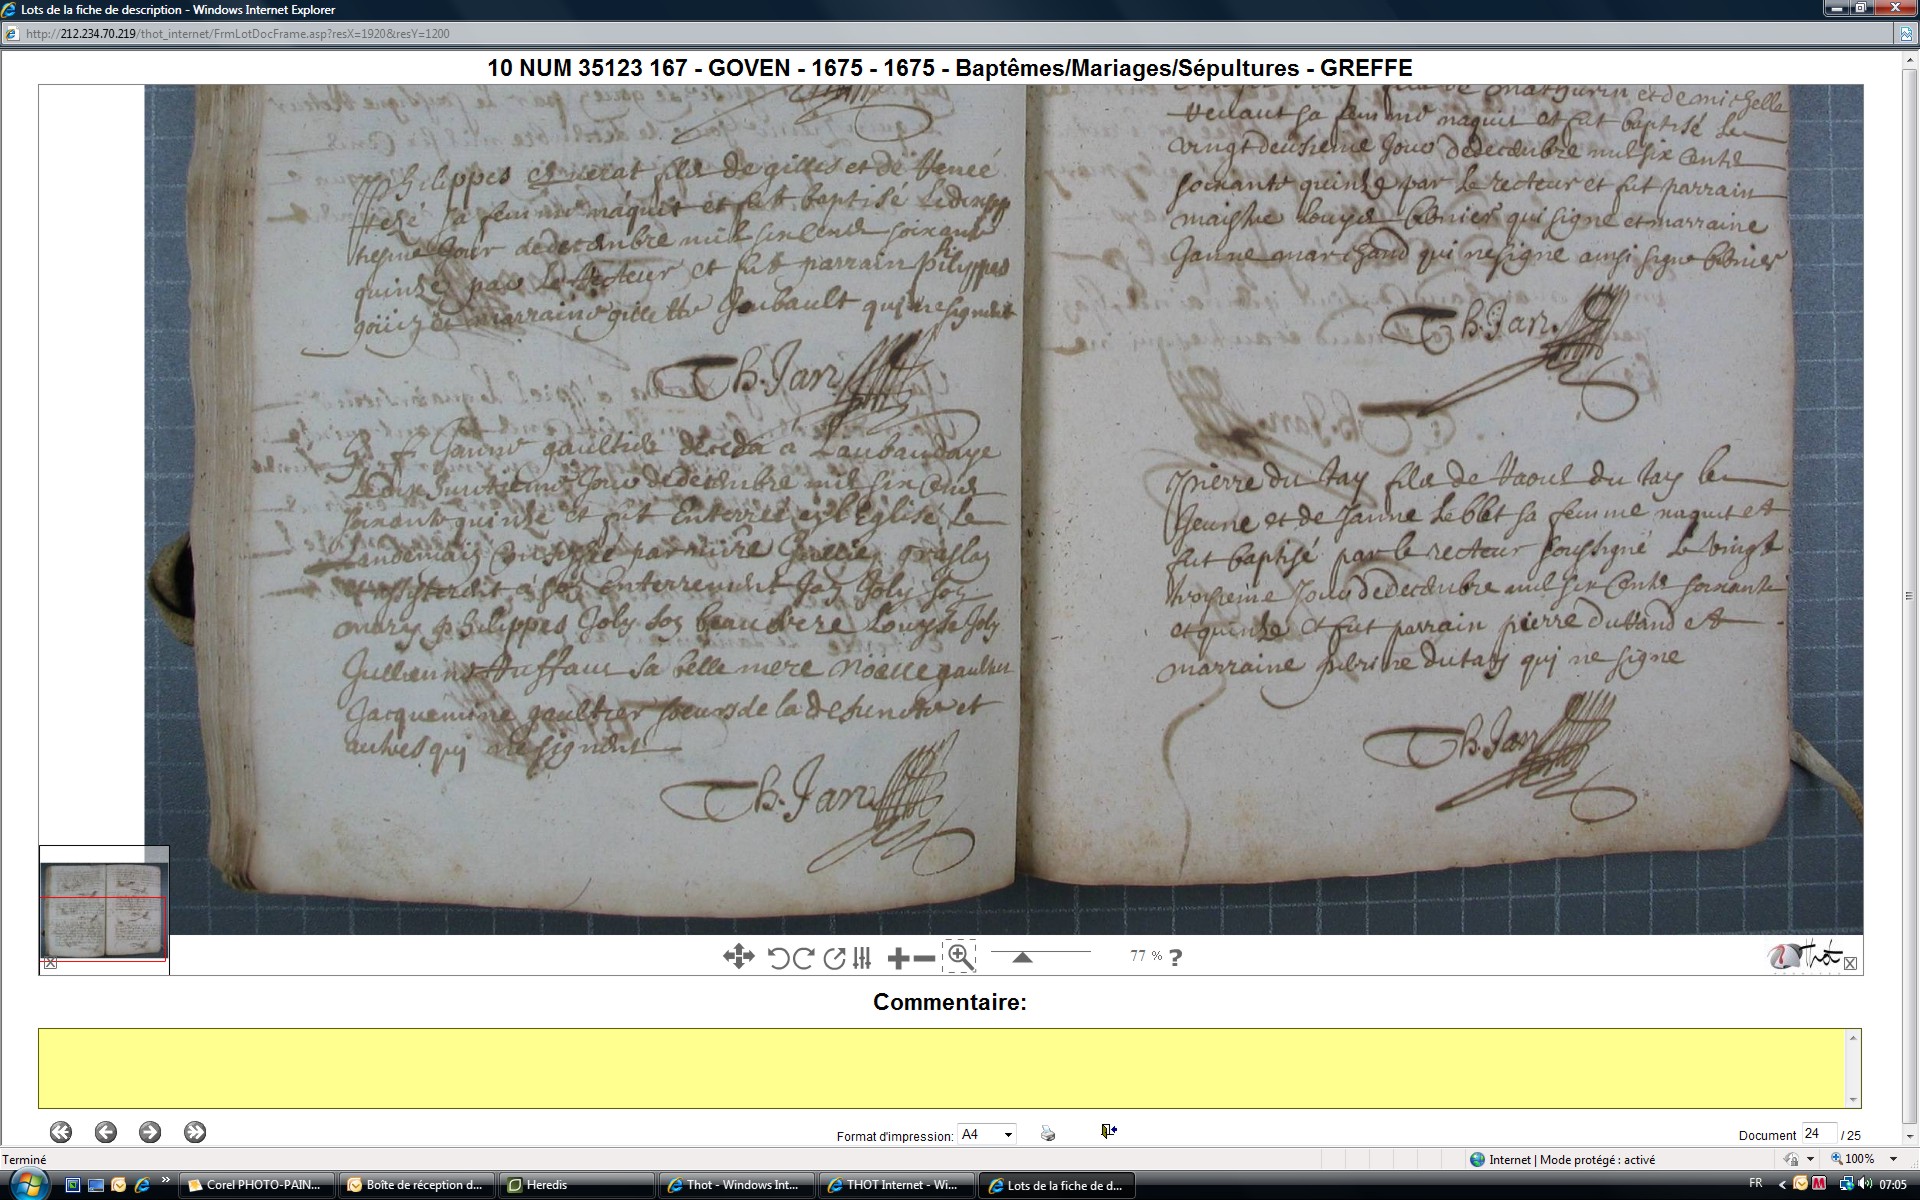 Lots de la fiche de description - Windows Internet Explorer
http://212.234.70.219/thot_internet/FrmLotDocFrame.asp?resX=1920&resY=1200
10 NUM 35123 167 - GOVEN - 1675 - 1675 - Baptêmes/Mariages/Sépultures - GREFFE
Philippes fils de gilles et de Renee
sa femme naquit et fut baptisé
jour de decembre mil six Cents soixante
quinze par Le Recteur et fut parrain philippes
et marraine gillette Joubault qui ne signent
Th. Jan
Janne gaultier deceda a Laubaudaye
Le dix huictieme Jour de decembre mil six Cents
soixante quinze et fut Enterrée en l'Eglise Le
Landemain par mire
et assisterent à son enterrement Jan Joly son
mary philippes Joly son beau Louyse Joly
Jullienne Ruffaut sa belle mere Noelle gaultier
Jacquemine gaultier soeurs de la defuncte et
autres qui ne signent
Th. Jan
de Mathurin et de michelle
sa femme naquit et fut baptisé Le
vingt deuxieme Jour de decembre mil six Cents
soixante quinze par Le recteur et fut parrain
maistre Louys qui signe et marraine
Janne marchand qui ne signe ainsi signe
Th. Jan
Pierre du tay fils de Raoul du tay Le
Jeune et de Janne Leblet sa femme naquit et
fut baptisé par Le recteur soussigné Le vingt
troisieme Jour de decembre mil six Cents soixante
et quinze et fut parrain pierre durand et
marraine perrine du tay qui ne signe
Th. Jan
77 % ?
Thot
Commentaire:
Format d'impression: A4
Document 24 / 25
Terminé
Internet | Mode protégé : activé
100%
Corel PHOTO-PAIN...
Boîte de réception d...
Heredis
Thot - Windows Int...
THOT Internet - Wi...
Lots de la fiche de d...
FR
07:05